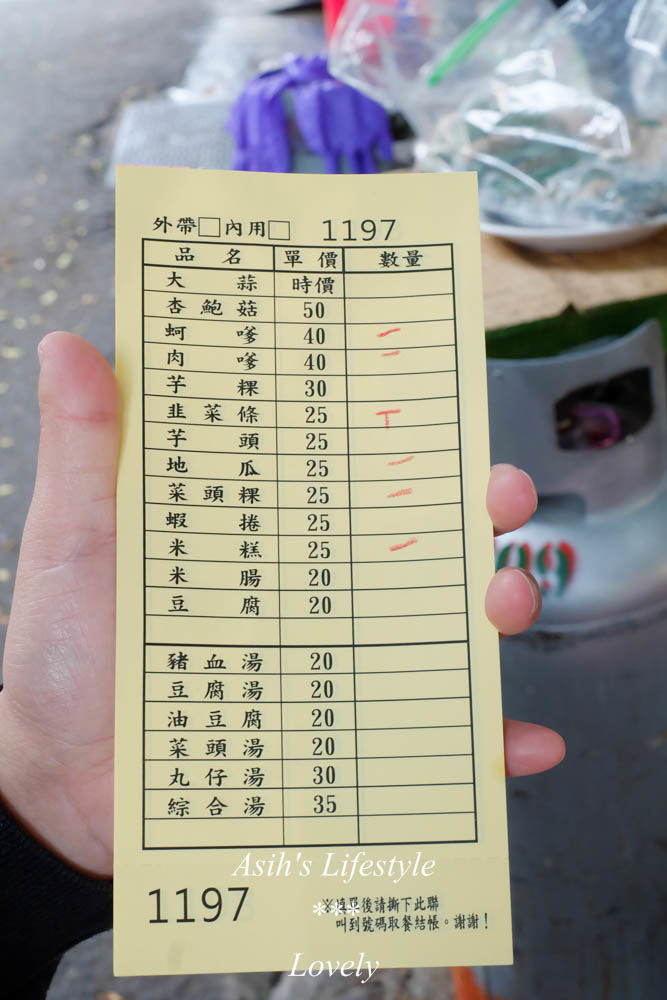 外帶□內用□ 1197
品名 單價 數量
大蒜 時價
杏鮑菇 50
蚵嗲 40 一
肉嗲 40 一
芋粿 30
韭菜條 25 T
芋頭 25
地瓜 25 一
菜頭粿 25 一
蝦捲 25
米糕 25 一
米腸 20
豆腐 20
豬血湯 20
豆腐湯 20
油豆腐 20
菜頭湯 20
丸仔湯 30
綜合湯 35
Asih's Lifestyle
1197
※填單後請撕下此聯
***
叫到號碼取餐結帳。謝謝!
Lovely
09